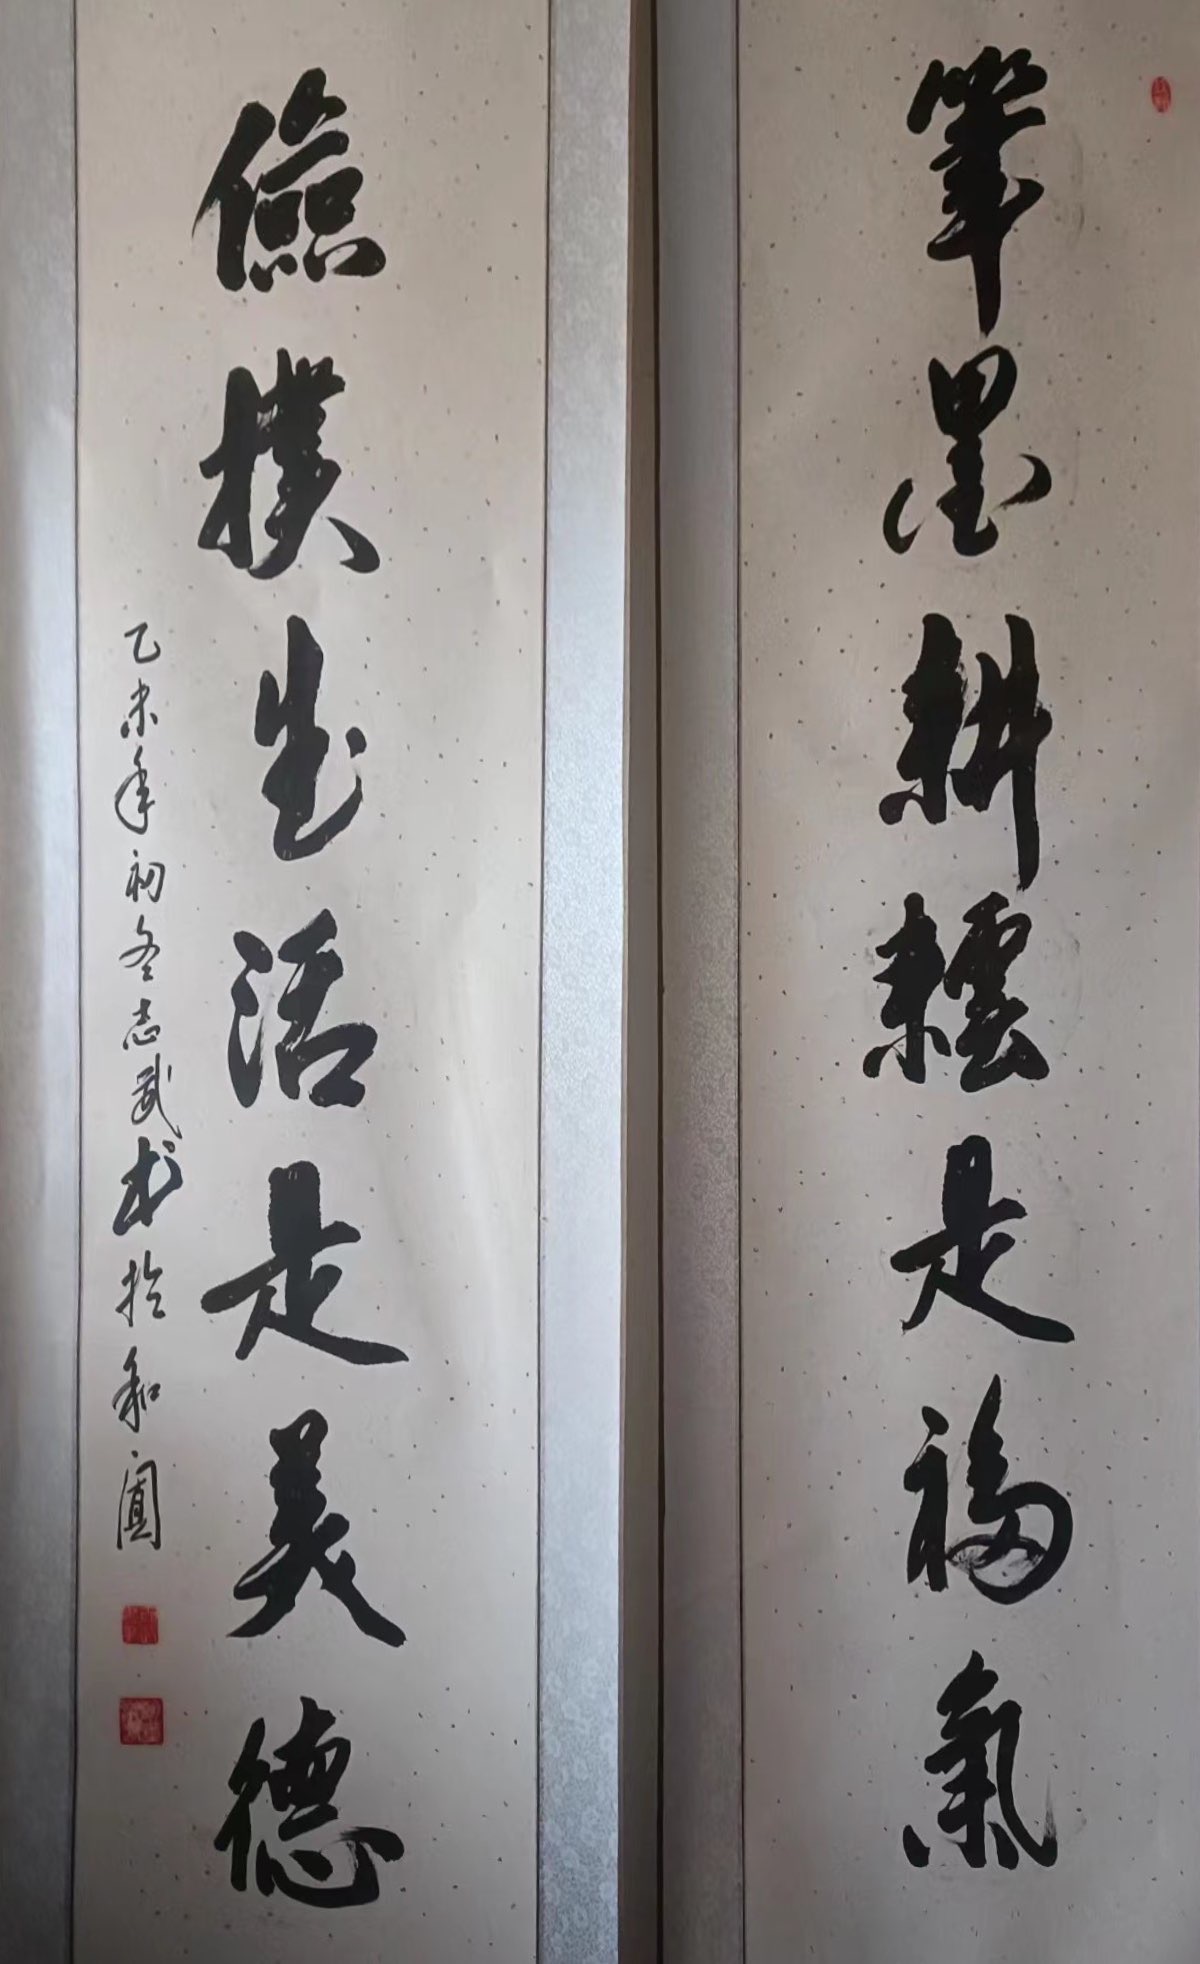 筆墨耕耘是福氣
儉樸生活是美德
乙未年初冬志武书於和圓